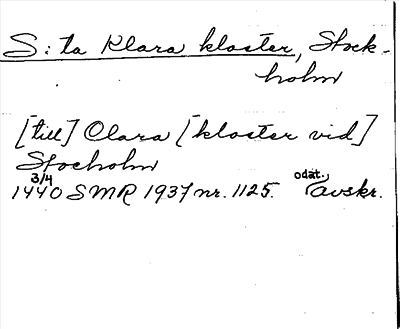 S:ta Klara kloster, Stock-
holm
[till] Clara [kloster vid]
Stocholm
1440 3/4 SMR 1937 nr. 1125. odat. avskr.